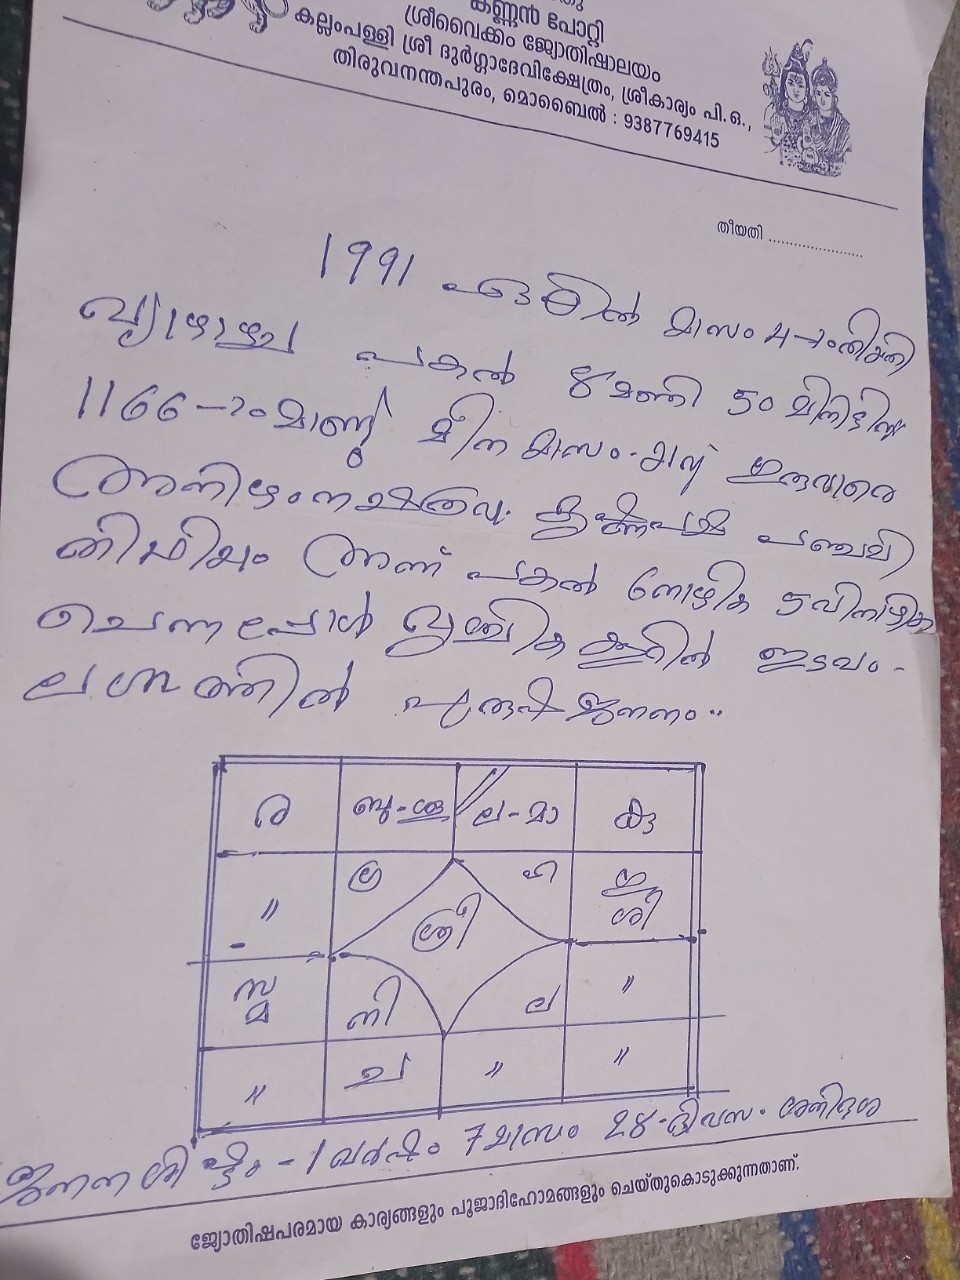 കണ്ണൻ പോറ്റി
ശ്രീവൈക്കം ജ്യോതിഷാലയം
കല്ലംപള്ളി ശ്രീ ദുർഗ്ഗാദേവിക്ഷേത്രം, ശ്രീകാര്യം പി.ഒ.,
തിരുവനന്തപുരം, മൊബൈൽ : 9387769415
തീയതി ......................
1991 ഏപ്രിൽ മാസം 4-ാംതിയതി
വ്യാഴാഴ്ച പകൽ 8 മണി 50 മിനിട്ടിന്
1166-ാംമാണ്ടു് മീന മാസം ഇരുപതെ
അനിഴം നക്ഷത്രവും കൃഷ്ണപക്ഷ പഞ്ചമി
തിഥിയും അന്ന് പകൽ നാഴിക 5 വിനാഴിക
ചെന്നപ്പോൾ വൃശ്ചിക കൂറിൽ ഇടവം-
ലഗ്നത്തിൽ പുരുഷജനനം..
ര ബു-ശു ല-മാ കു
〃 ഗ്ര ഹ ഗു ശി
ശ്രീ
സ്മ നി ല 〃
മ
〃 ച 〃 〃
ജനന ശിഷ്ടം - 1 വർഷം 7 മാസം 28-ദിവസം ശനിദശ
ജ്യോതിഷപരമായ കാര്യങ്ങളും പൂജാദിഹോമങ്ങളും ചെയ്തുകൊടുക്കുന്നതാണ്.